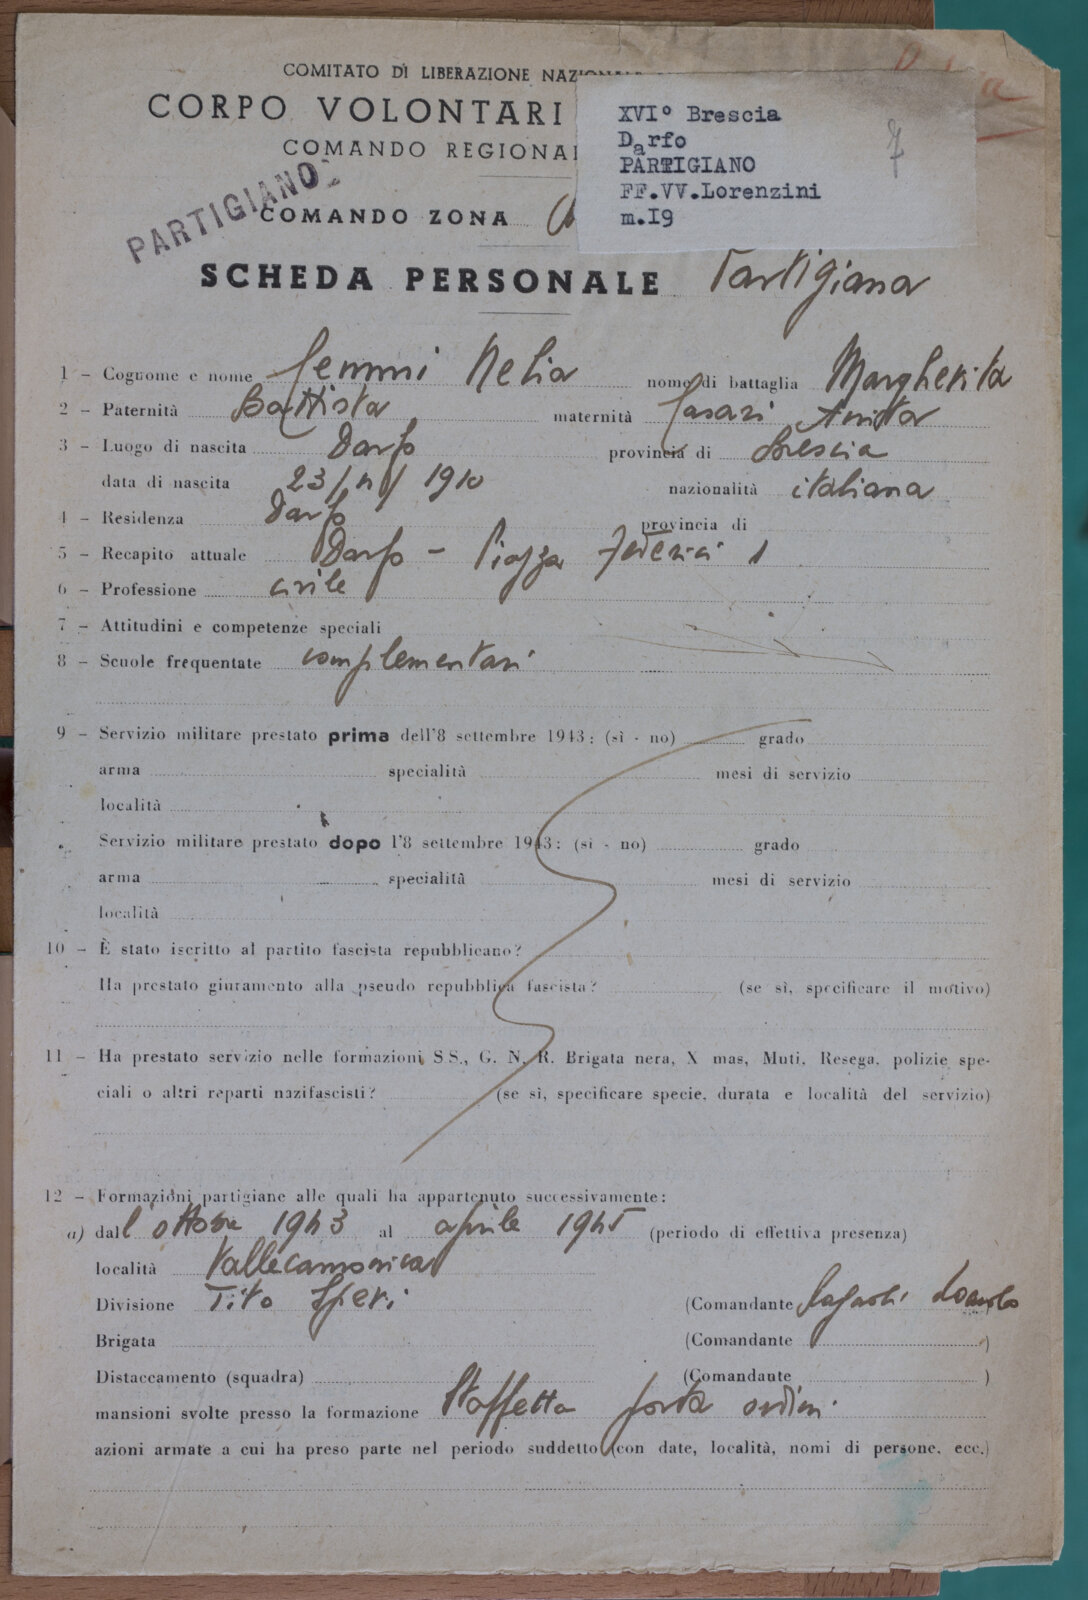 COMITATO DI LIBERAZIONE NAZIONALE
CORPO VOLONTARI
COMANDO REGIONAL
XVI° Brescia
Darfo
PARTIGIANO
FF.VV.Lorenzini
m.I9
7
PARTIGIANO
COMANDO ZONA
SCHEDA PERSONALE Partigiana
1 - Cognome e nome Gemmi Nelia nome di battaglia Margherita
2 - Paternità Battista maternità Casari Anita
3 - Luogo di nascita Darfo provincia di Brescia
data di nascita 23/11/1910 nazionalità italiana
4 - Residenza Darfo provincia di
5 - Recapito attuale Darfo - Piazza Federici 1
6 - Professione civile
7 - Attitudini e competenze speciali
8 - Scuole frequentate complementari
9 - Servizio militare prestato prima dell'8 settembre 1943: (sì - no) grado
arma specialità mesi di servizio
località
Servizio militare prestato dopo l'8 settembre 1943: (sì - no) grado
arma specialità mesi di servizio
località
10 - È stato iscritto al partito fascista repubblicano?
Ha prestato giuramento alla pseudo repubblica fascista? (se sì, specificare il motivo)
11 - Ha prestato servizio nelle formazioni S.S., G. N. R. Brigata nera, X mas, Muti, Resega, polizie spe-
ciali o altri reparti nazifascisti? (se sì, specificare specie, durata e località del servizio)
12 - Formazioni partigiane alle quali ha appartenuto successivamente:
a) dal l'ottobre 1943 al aprile 1945 (periodo di effettiva presenza)
località Vallecamonica
Divisione Tito Speri (Comandante Ragnoli Romolo
Brigata (Comandante )
Distaccamento (squadra) (Comandante )
mansioni svolte presso la formazione Staffetta porta ordini
azioni armate a cui ha preso parte nel periodo suddetto (con date, località, nomi di persone, ecc.)